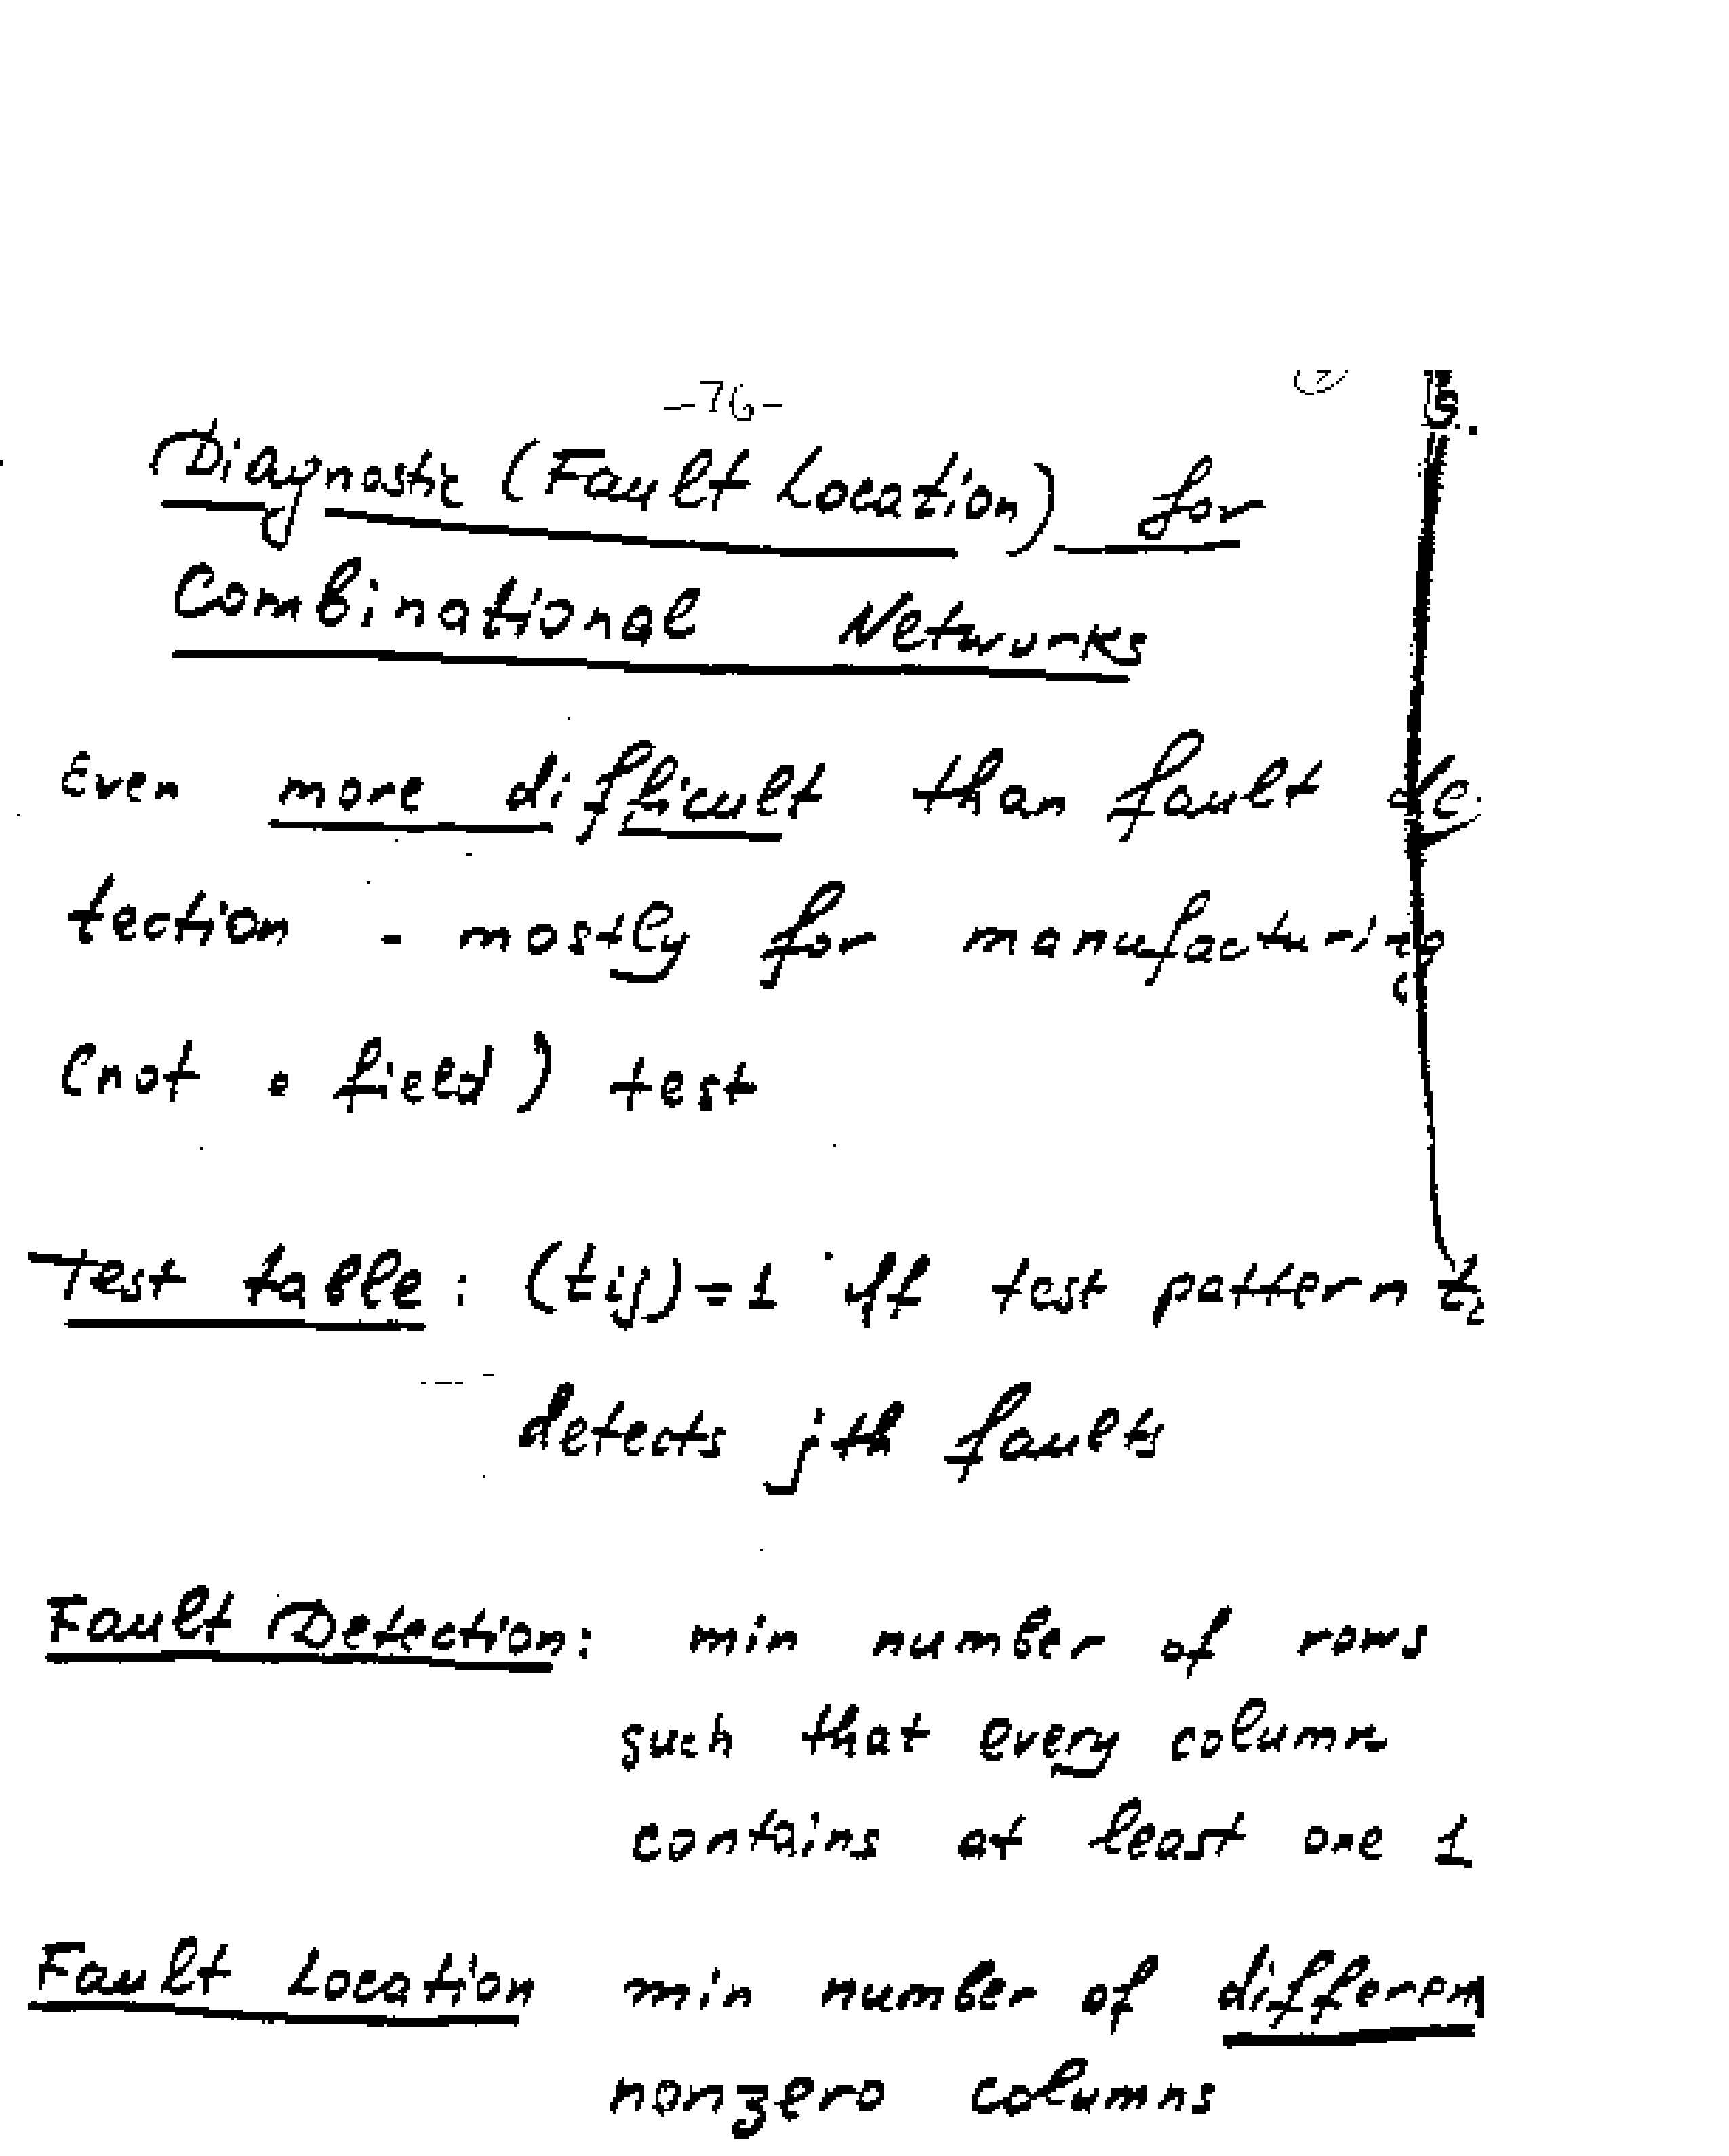 -76-
Diagnostic (Fault Location) for
Combinational Networks
Even more difficult than fault de
tection - mostly for manufacturing
(not • field) test
Test table: (tij)=1 iff test pattern ti
detects jth faults
Fault Detection: min number of rows
such that every column
contains at least one 1
Fault Location min number of different
nonzero columns